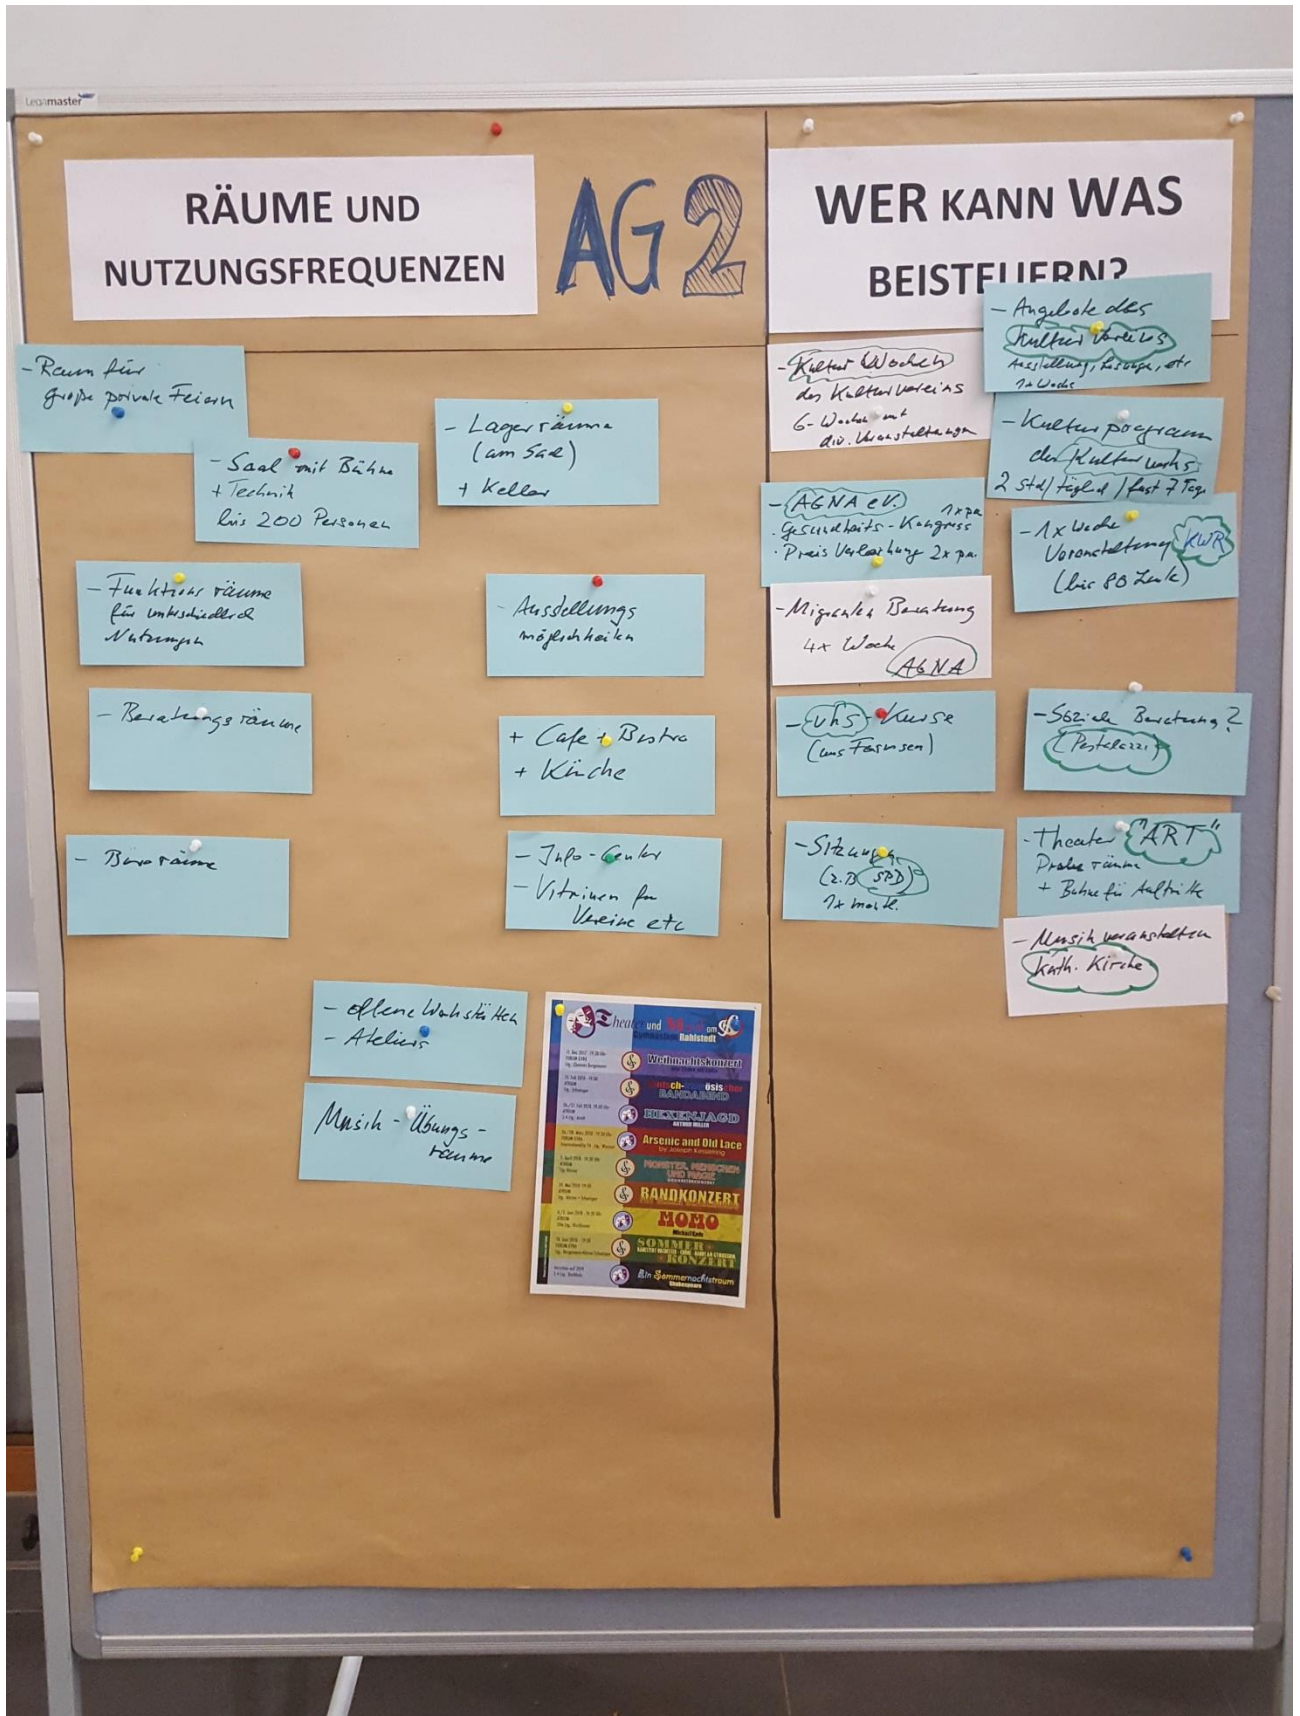 Legamaster
RÄUME UND
NUTZUNGSFREQUENZEN
AG 2
- Raum für
große private Feiern
- Saal mit Bühne
+ Technik
bis 200 Personen
- Lagerräume
(am Saal)
+ Keller
- Funktionsräume
für unterschiedlich
Nutzungen
- Ausstellungs
möglichkeiten
- Beratungsräume
+ Cafe + Bistro
+ Küche
- Büroräume
- Info-Center
- Vitrinen für
Vereine etc
- offene Werkstätten
- Ateliers
Musik-Übungs-
räume
Theater und Musik am
Gymnasium Rahlstedt
Weihnachtskonzert
BANDABEND
HEXENJAGD
ARTHUR MILLER
Arsenic and Old Lace
by Joseph Kesselring
MONSTER, MENSCHEN
UND MAGIE
BANDKONZERT
MOMO
Michael Ende
SOMMER
KONZERT
Ein Sommernachtstraum
Shakespeare
WER KANN WAS
BEISTEUERN?
- Angebote des
Kulturvereins
Ausstellung, Lesungen, etc
1x Woche
- Kultur Wochen
des Kulturvereins
6-Wochen mit
div. Veranstaltungen
- Kulturprogramm
des Kulturwerks
2 Std/täglich/fast 7 Tage
- AGNA e.V.
· Gesundheits-Kongress 1x pa
· Preis Verleihung 2x pa.
- 1x Woche
Veranstaltung KWR
(bis 80 Leute)
- Migranten Beratung
4x Woche
AGNA
- vhs-Kurse
(aus Farmsen)
- Soziale Beratung?
(Pestalozzi)
- Sitzungen
(z.B. SPD)
1x monatl.
- Theater "ART"
Probe räume
+ Bühne für Auftritte
- Musik veranstalten
Kath. Kirche